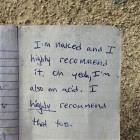 I'm naked and I
highly recommend
it. Oh yeah, I'm
also on acid. I
highly recommend
that too.